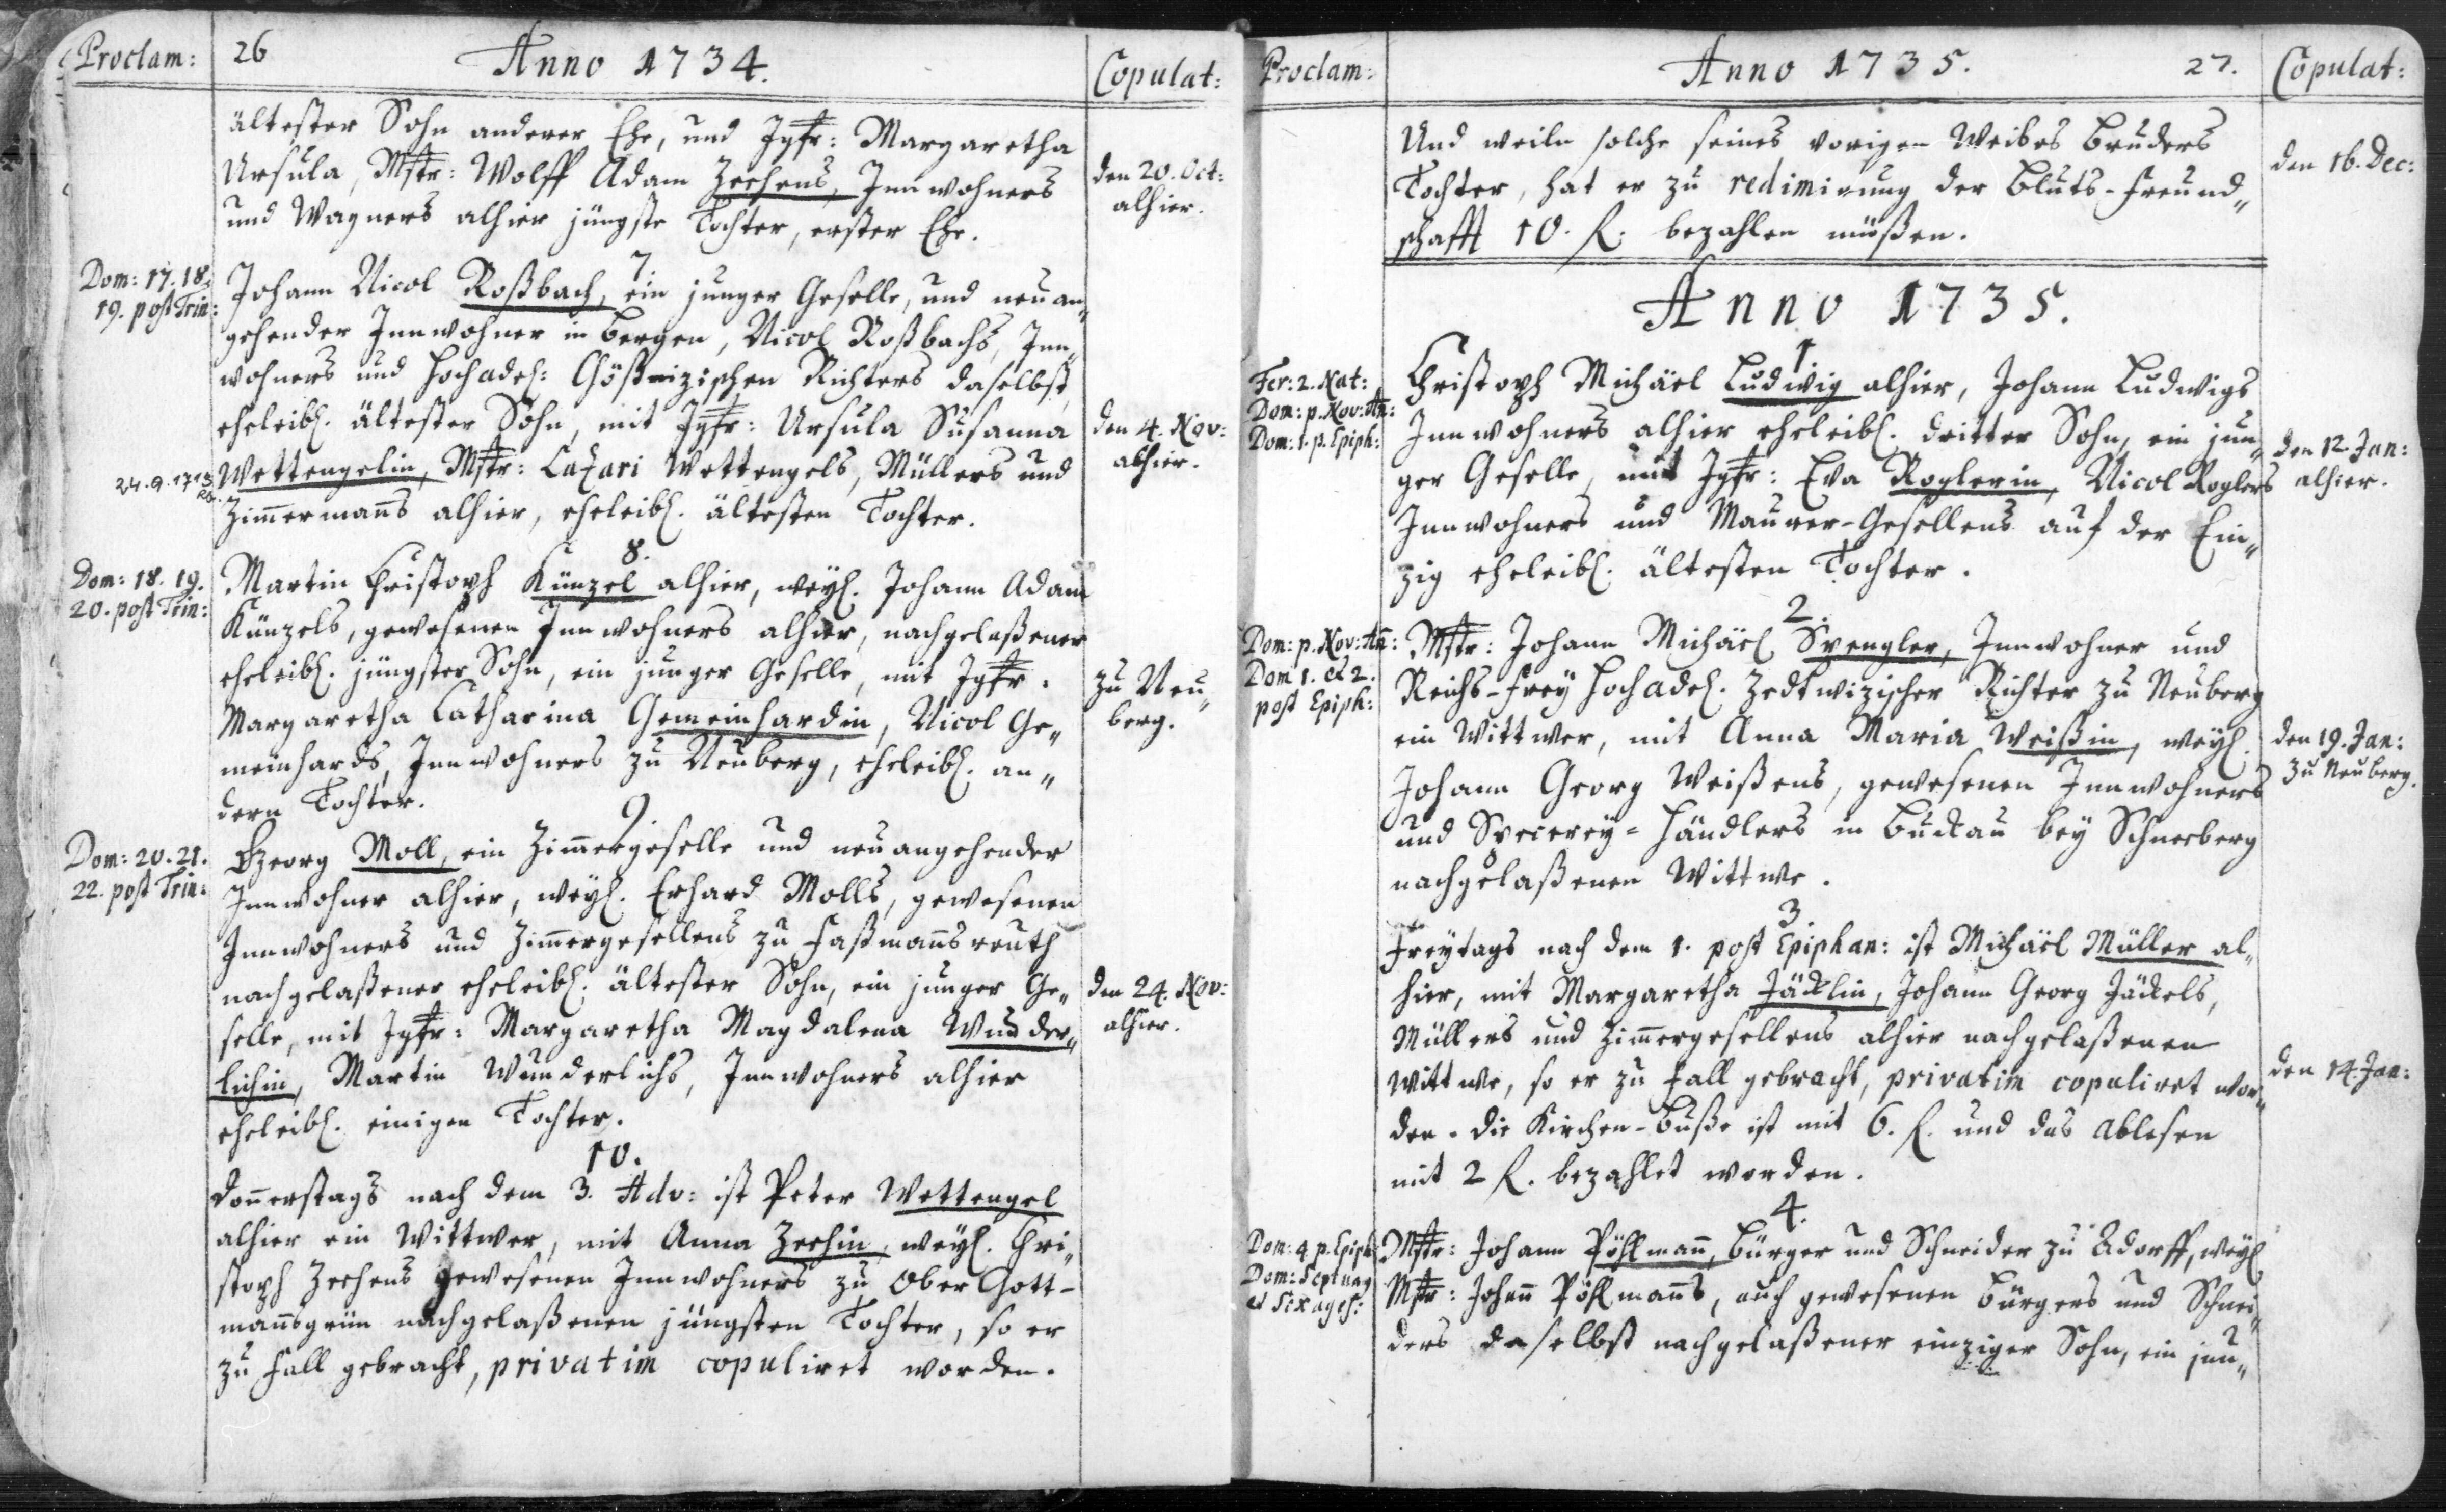 Proclam:
26
Anno 1734.
Copulat:
ältester Sohn anderer Ehe, und Jgfr: Margaretha
Ursula, Mstr: Wolff Adam Zeehens, Innwohners
und Wagners alhier jüngste Tochter, erster Ehe.
den 20. Oct:
alhier.
7.
Dom: 17. 18.
19. post Trin:
Johann Nicol Roßbach, ein junger Geselle, und neu an„
gehender Innwohner in Bergen, Nicol Roßbachs, Inn„
wohners und Hochadel: Gößnizischen Richters daselbst,
eheleibl. ältester Sohn, mit Jgfr: Ursula Susanna
Wettengelin, Mstr: Lazari Wettengels, Müllers und
Zimmermanns alhier, eheleibl. ältesten Tochter.
24. 9. 1713
den 4. Nov:
alhier.
8.
Dom: 18. 19.
20. post Trin:
Martin Christoph Künzel alhier, weyl. Johann Adam
Künzels, gewesenen Innwohners alhier, nachgelaßener
eheleibl. jüngster Sohn, ein junger Geselle, mit Jgfr.
Margaretha Catharina Gemeinhardin, Nicol Ge„
meinhards, Innwohners zu Neuberg, eheleibl. an„
dern Tochter.
zu Neu„
berg.
9.
Dom: 20. 21.
22. post Trin:
Georg Moll, ein Zimmergeselle und neuangehender
Innwohner alhier, weyl. Erhard Molls, gewesenen
Innwohners und Zimmergesellens zu Faßmannsreuth
nachgelaßener eheleibl. ältester Sohn, ein junger Ge„
selle, mit Jgfr: Margaretha Magdalena Wunder„
lichin, Martin Wunderlichs, Innwohners alhier
eheleibl. einigen Tochter.
den 24. Nov:
alhier.
10.
Donnerstags nach dem 3. Adv: ist Peter Wettengel
alhier ein Wittwer, mit Anna Zeehin, weyl. Chri„
stoph Zeehens gewesenen Innwohners zu Ober Gott-
mannsgrün nachgelaßenen jüngsten Tochter, so er
zu Fall gebracht, privatim copuliret worden.
Proclam:
Anno 1735.
27.
Copulat:
Und weiln solche seines vorigen Weibes Bruders
Tochter, hat er zu redimirung der Bluts-Freund„
schafft 10. f. bezahlen müßen.
den 16. Dec:
Anno 1735.
1.
Fer: 2. Nat:
Dom: p. Nov: An:
Dom: 1. p. Epiph:
Christoph Michäel Ludwig alhier, Johann Ludwigs
Innwohners alhier eheleibl. dritter Sohn, ein jun„
ger Geselle, mit Jgfr: Eva Roglerin, Nicol Roglers
Innwohners und Maurer-Gesellens auf der Ein„
zig eheleibl. ältesten Tochter.
den 12. Jan:
alhier.
2.
Dom: p. Nov: An:
Dom 1. et 2.
post Epiph:
Mstr: Johann Michäel Spengler, Innwohner und
Reichs-Frey Hochadel. Zedtwizischer Richter zu Neuberg
ein Wittwer, mit Anna Maria Weißin, weyl.
Johann Georg Weißens, gewesenen Innwohners
und Specerey-Händlers in Buckau bey Schneeberg
nachgelaßenen Wittwe.
den 19. Jan:
zu Neuberg.
3.
Freytags nach dem 1. post Epiphan: ist Michäel Müller al„
hier, mit Margaretha Jäcklin, Johann Georg Jäckels,
Müllers und Zimmergesellens alhier nachgelaßenen
Wittwe, so er zu Fall gebracht, privatim copuliret wor„
den. Die Kirchen-Buße ist mit 6. f. und das Ablesen
mit 2 f. bezahlet worden.
den 14. Jan:
4.
Dom: 4. p. Epiph
Dom: Septuag
et Sexages:
Mstr: Johann Pöhlmann, Bürger und Schneider zu Adorff, weyl
Mstr: Johann Pöhlmanns, auch gewesenen Bürgers und Schnei„
ders daselbst nachgelaßener einziger Sohn, ein jun„